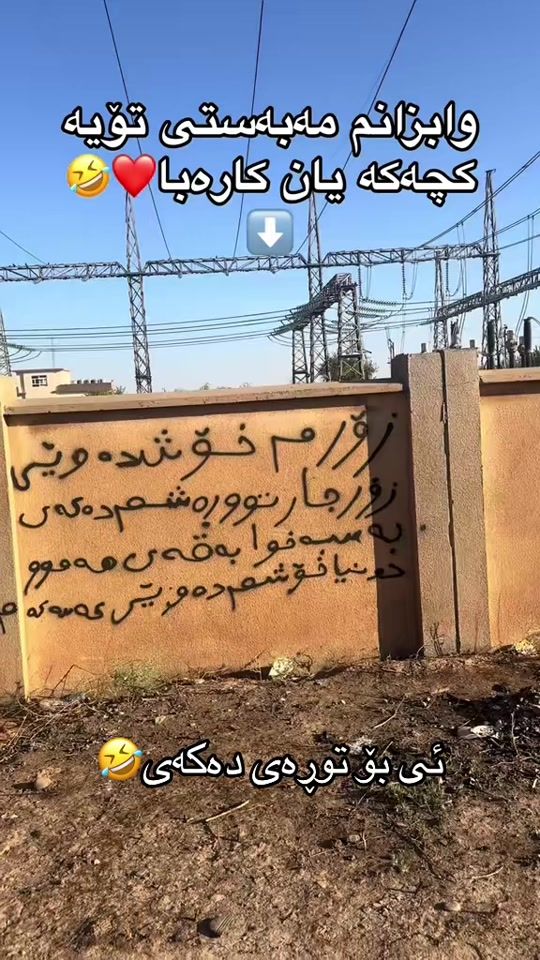 وابزانم مەبەستی تۆیە
کچەکە یان کارەبا❤️🤣
⬇️
زۆرم خۆشدەوێی
زۆرجار توورەشم دەکەی
بەس بەقەی هەموو
دونیا خۆشم دەوێی
ئی بۆ توڕەی دەکەی🤣